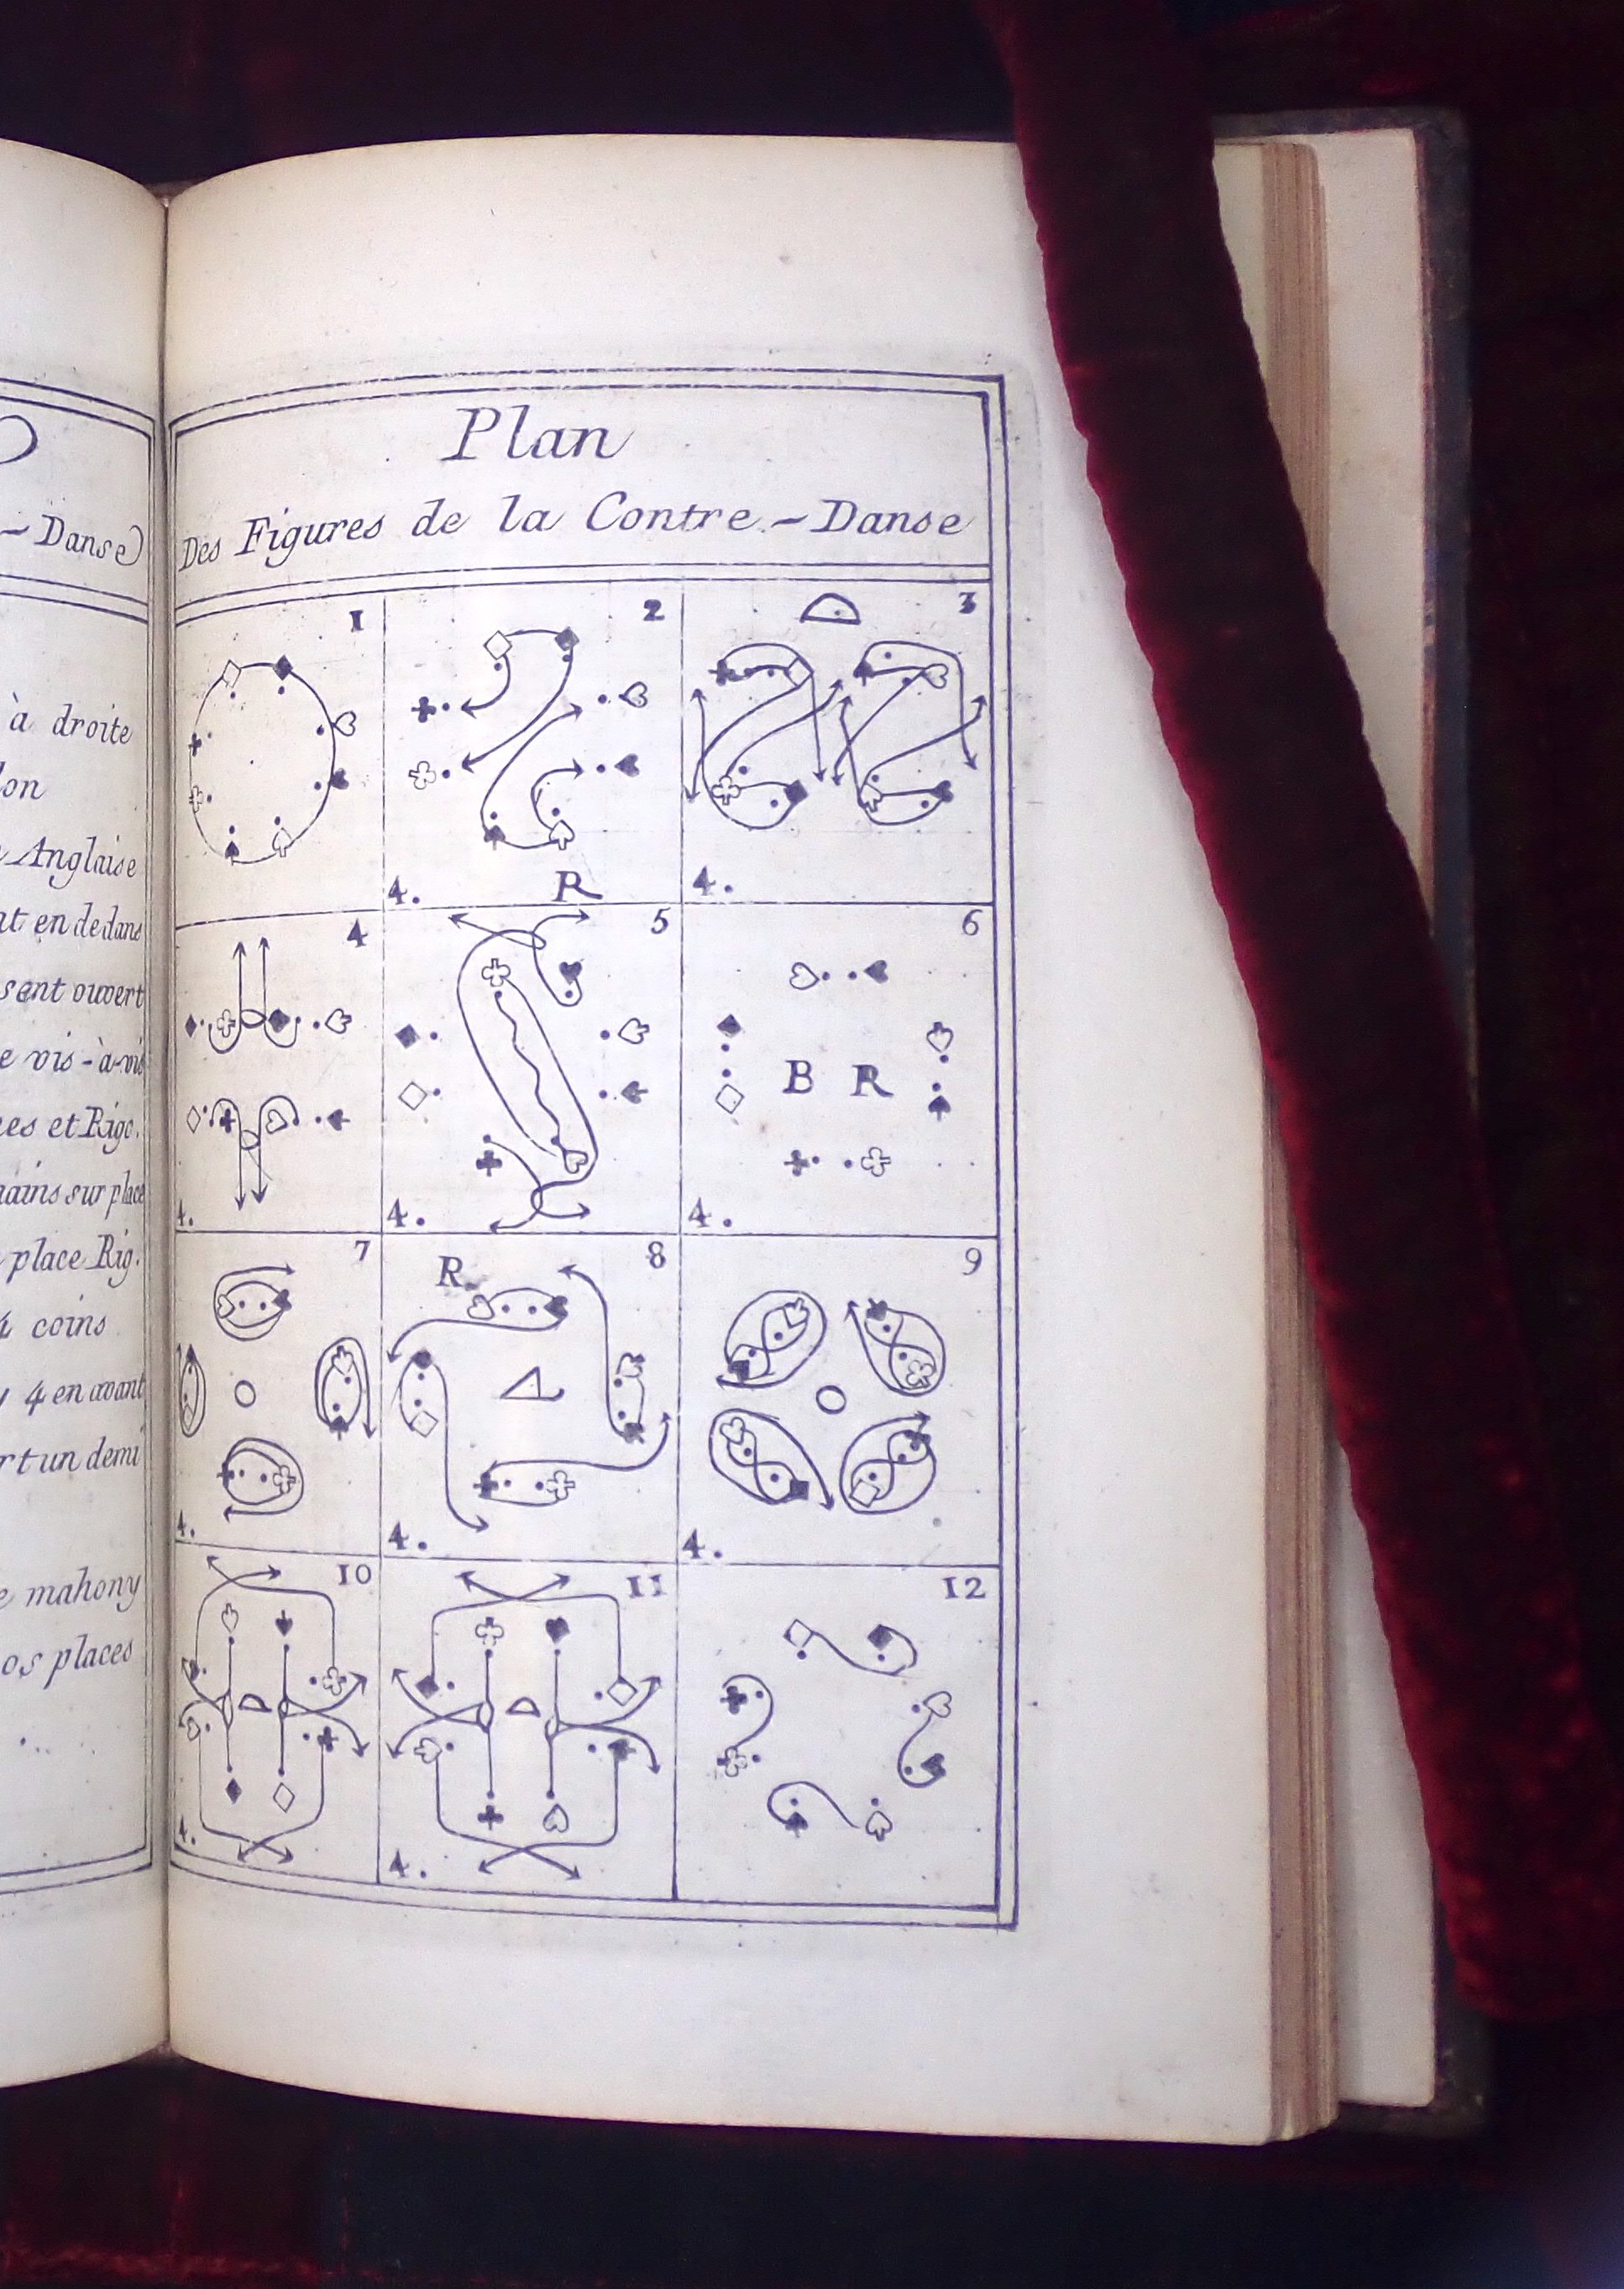 - Danse
à droite
Anglaise
en dedans
sent ouvert
vis-à-vis
et Rigo.
mains sur place
place Rig.
4 coins
4 en avant
un demi
mahony
os places
Plan
Des Figures de la Contre - Danse
1
2
3
4. R
4.
4
5
6
B R
4.
4.
4.
7
8
9
R.
4.
4.
4.
10
11
12
4.
4.